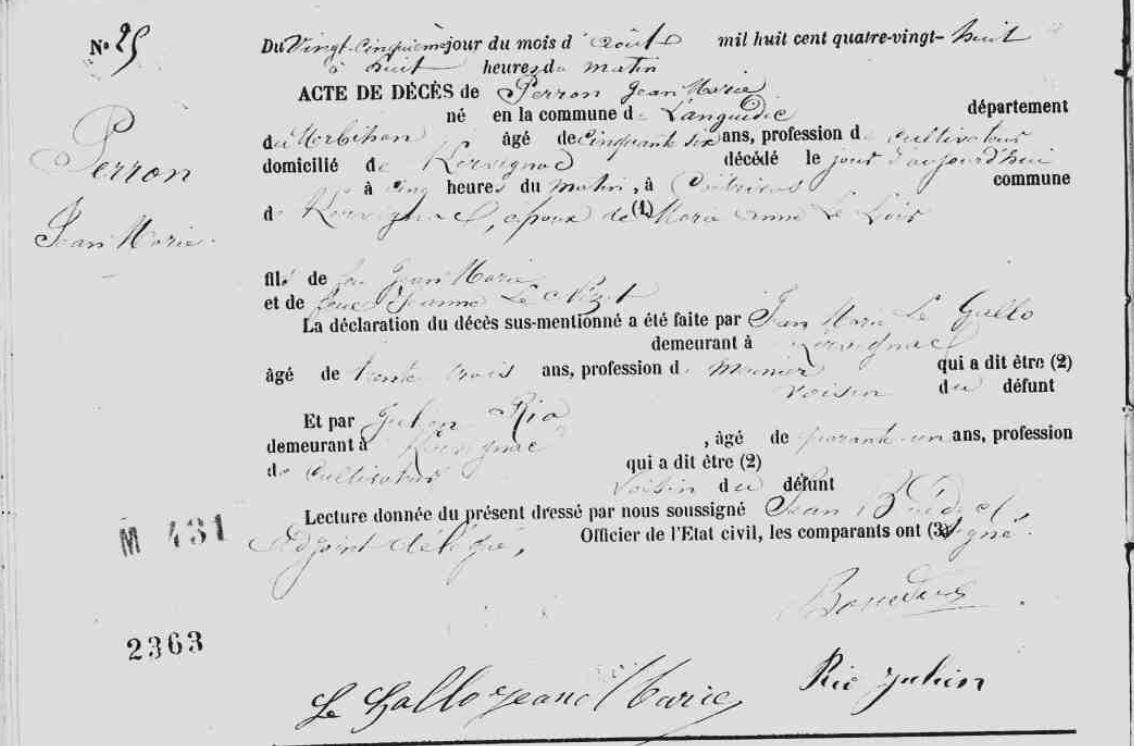 N° 25
Du Vingt-Cinquième jour du mois d'août mil huit cent quatre-vingt-huit
à huit heures du matin
ACTE DE DÉCÈS de Perron Jean Marie
né en la commune de Languidic département
du Morbihan âgé de cinquante six ans, profession de cultivateur
Perron
domicilié de Kervignac décédé le jour d'aujourd'hui
à cinq heures du matin, à commune
Jean Marie
de Kervignac, époux de (1) Marie Anne Le Loir
fils de feu Jean Marie
et de feue Jeanne Le
La déclaration du décès sus-mentionné a été faite par Jean Marie Le Gallo
demeurant à Kervignac
âgé de trente trois ans, profession de meunier qui a dit être (2)
voisin du défunt
Et par Julien Rio
demeurant à Kervignac, âgé de quarante-un ans, profession
de cultivateur qui a dit être (2)
voisin du défunt
Lecture donnée du présent dressé par nous soussigné Jean
M 431
Adjoint délégué, Officier de l'Etat civil, les comparants ont (3) signé.
2363
Rio Julien
Le Gallo Jean Marie